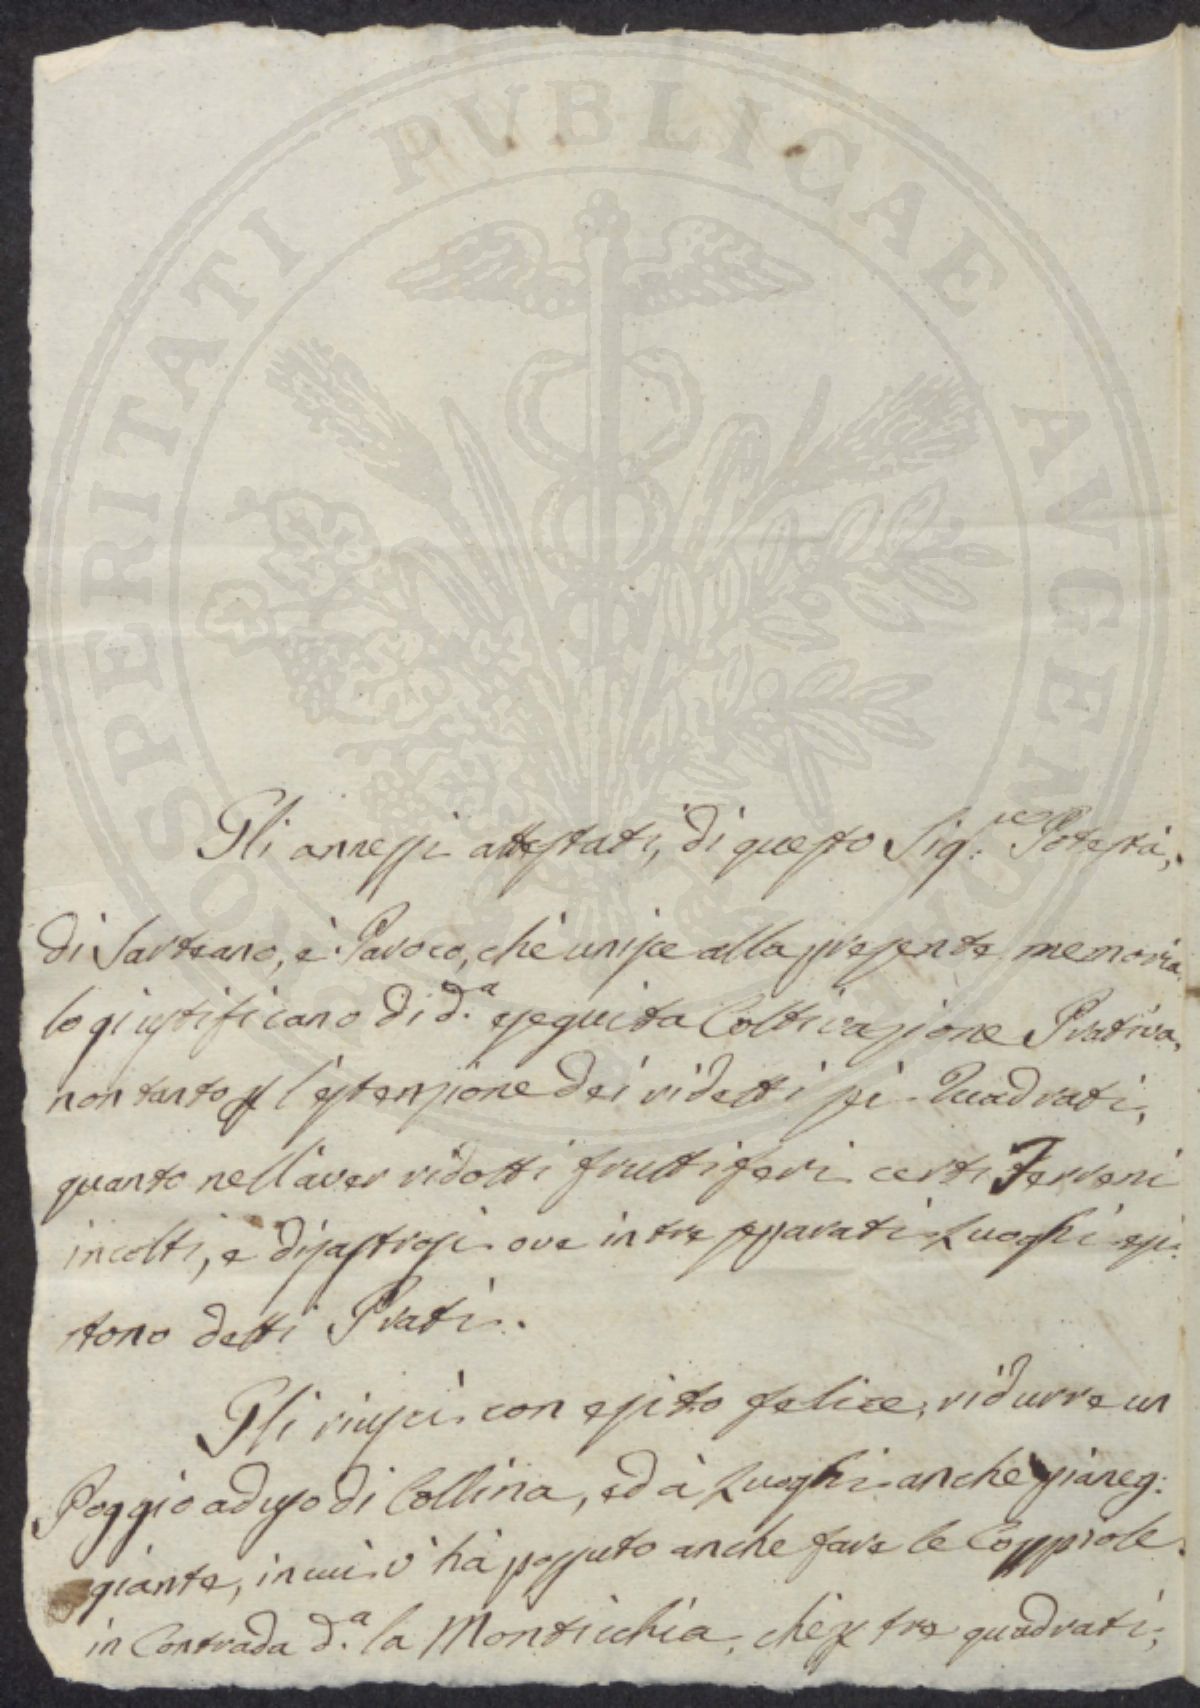 PROSPERITATI PUBLICAE AUGENDAE
Gli annessi attestati, di questo Sig.re Potestà,
di Sarteano, è Paroco, che unisce alla presente memoria
lo giustificano di d.a eseguita Coltivazione Prativa,
non tanto p l'estenzione dei ridetti sei Quadrati,
quanto nell'aver ridotti fruttiferi certi Terreni
incolti, e disastrosi ove in tre separati Luoghi esi:
stono detti Prati.
Gli riuscì con esito felice, ridurre un
Poggio ad uso di Collina, ed à Luoghi anche pianeg:
giante, in cui v' hà possuto anche fare le
in Contrada d.a la Monticchia, che p tre quadrati,